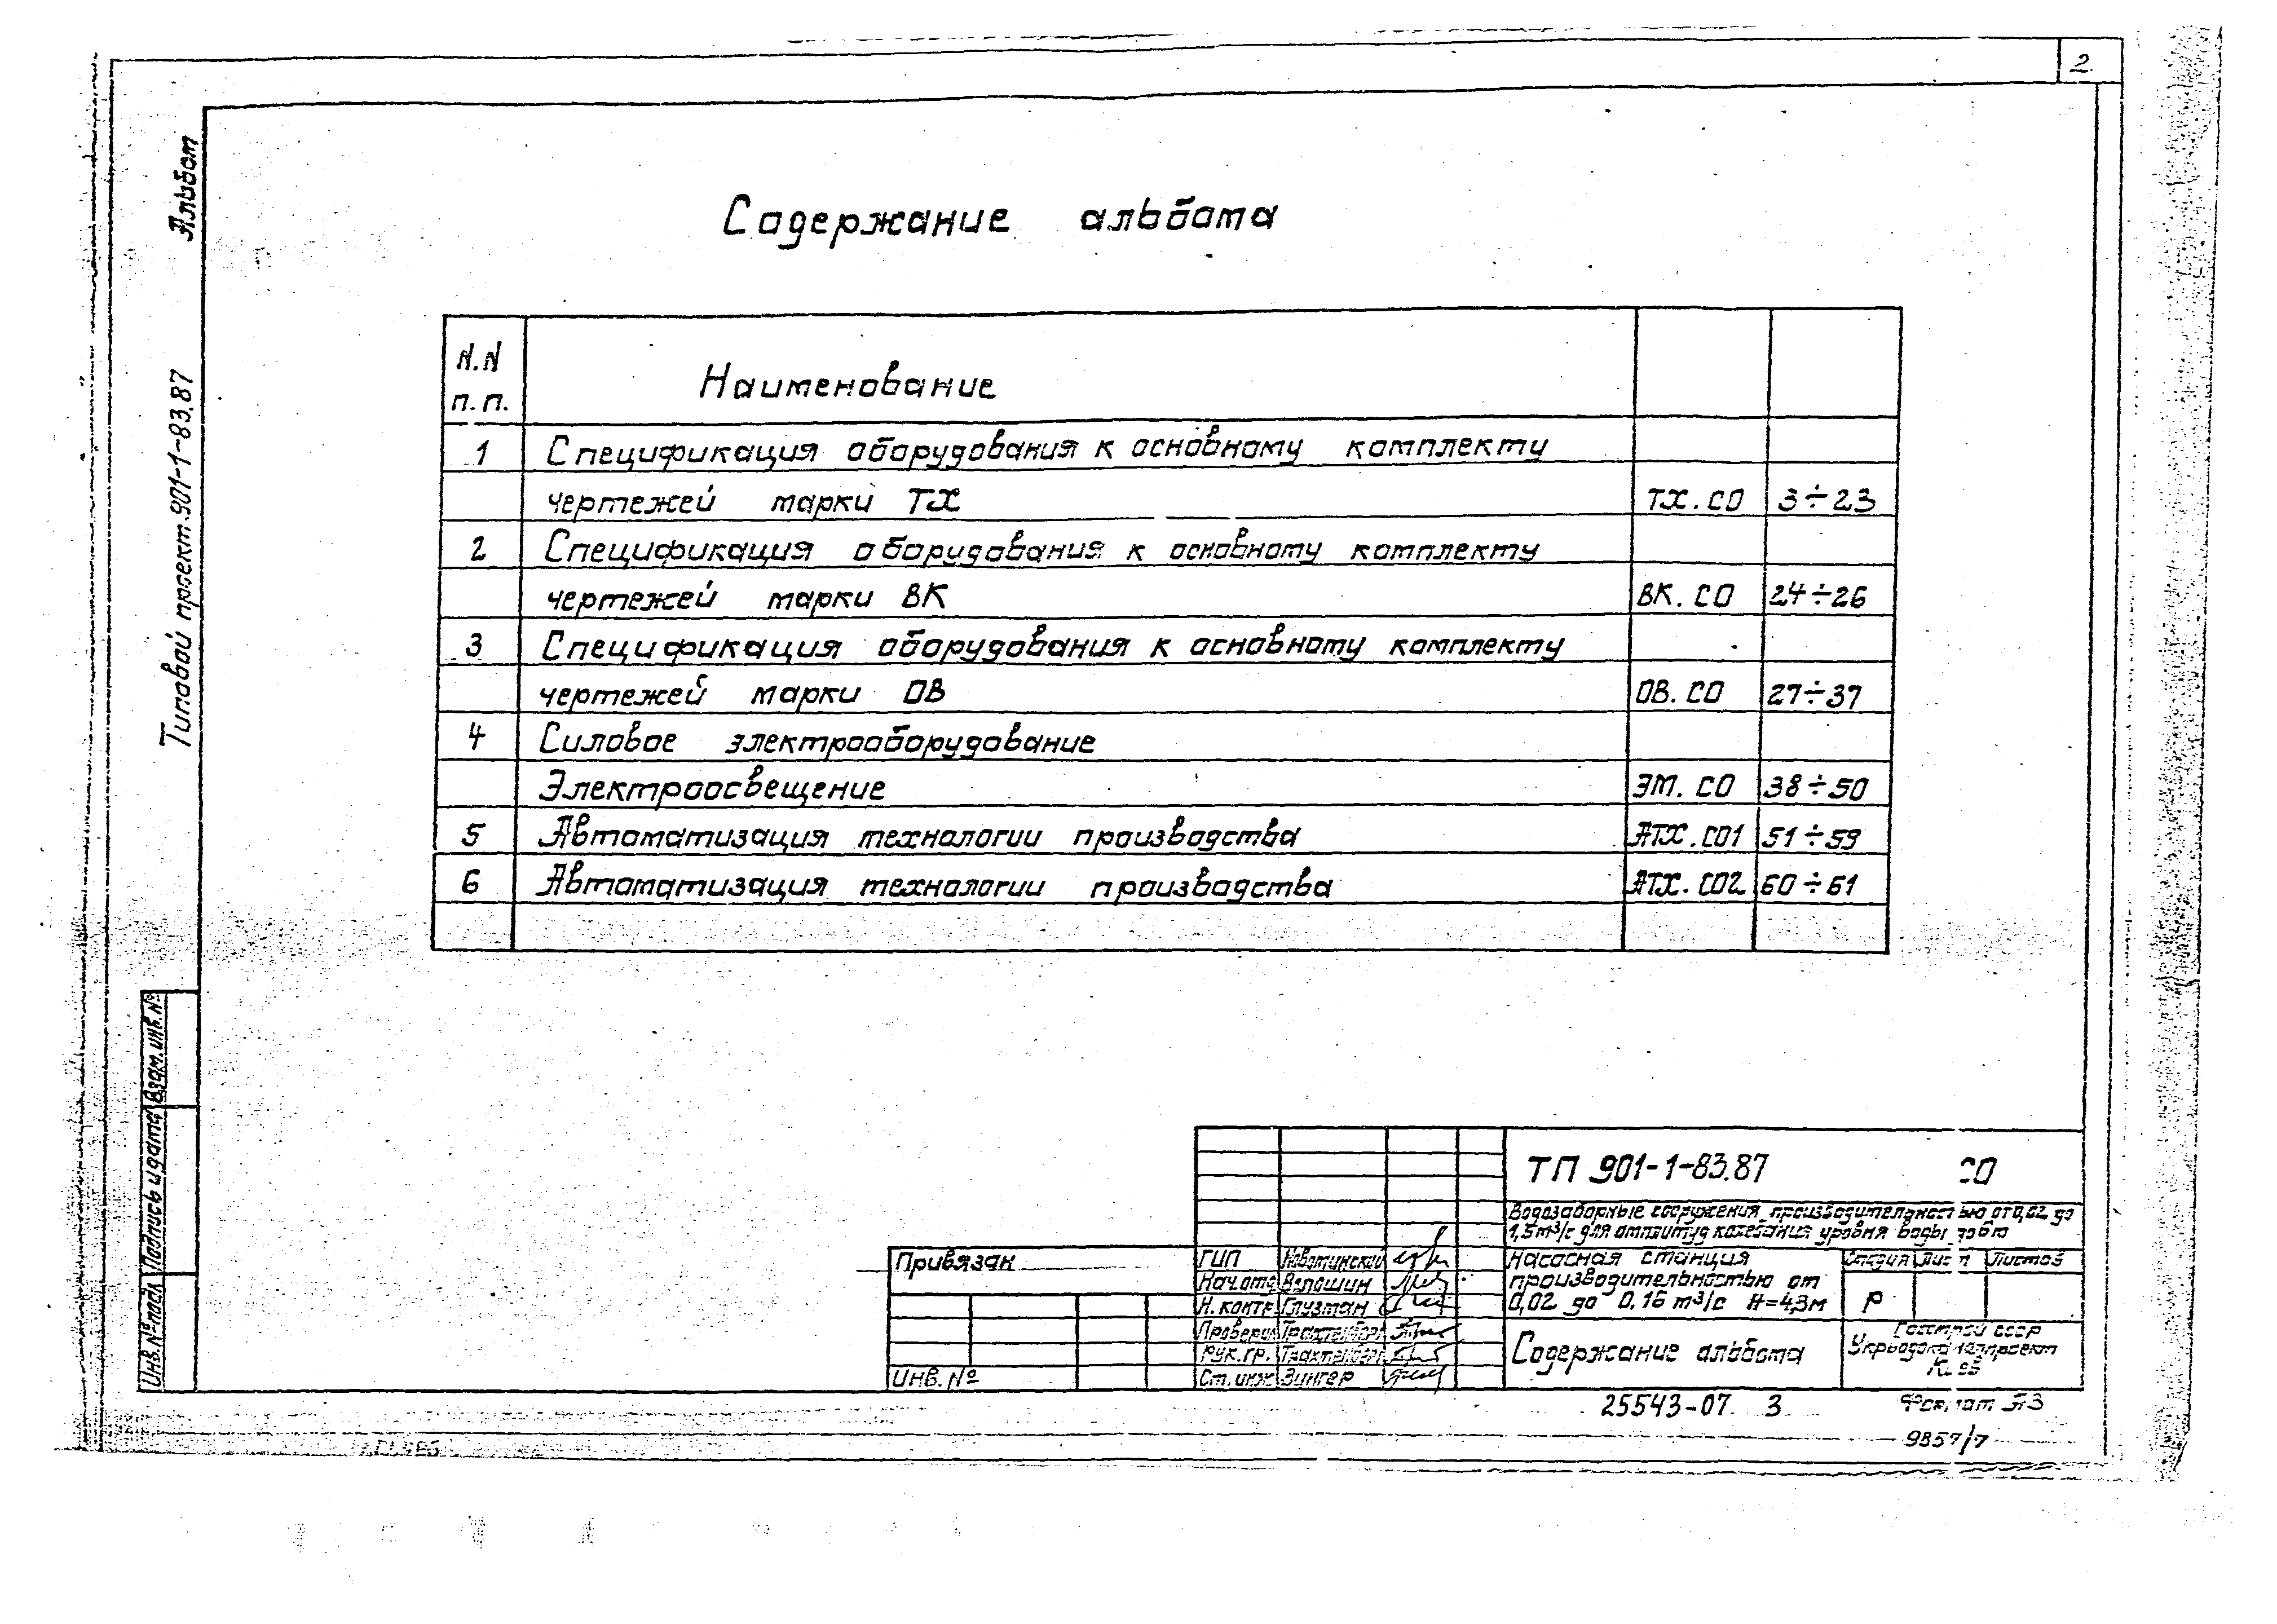 2
Альбом
Типовой проект 901-1-83.87
Содержание альбома
N.N п.п. Наименование
1 Спецификация оборудования к основному комплекту
чертежей марки ТХ ТХ.СО 3÷23
2 Спецификация оборудования к основному комплекту
чертежей марки ВК ВК.СО 24÷26
3 Спецификация оборудования к основному комплекту
чертежей марки ОВ ОВ.СО 27÷37
4 Силовое электрооборудование
Электроосвещение ЭМ.СО 38÷50
5 Автоматизация технологии производства АТХ.СО1 51÷59
6 Автоматизация технологии производства АТХ.СО2 60÷61
Взам.инв.№
Подпись и дата
Инв.№подл
ТП 901-1-83.87 СО
Водозаборные сооружения производительностью от 0,02 до
1,5м³/с для амплитуд колебания уровня воды до 6м
Привязан
Инв.№
ГИП Новотинский
Нач.отд Волошин
Н.контр Глузман
Проверил Трахтенберг
Рук.гр. Трахтенберг
Ст.инж Зингер
Насосная станция
производительностью от
0,02 до 0,16 м³/с Н=4,3м
Стадия Лист Листов
Р
Содержание альбома
Госстрой СССР
Укрводоканалпроект
Киев
25543-07 3 Формат А3
9857/7